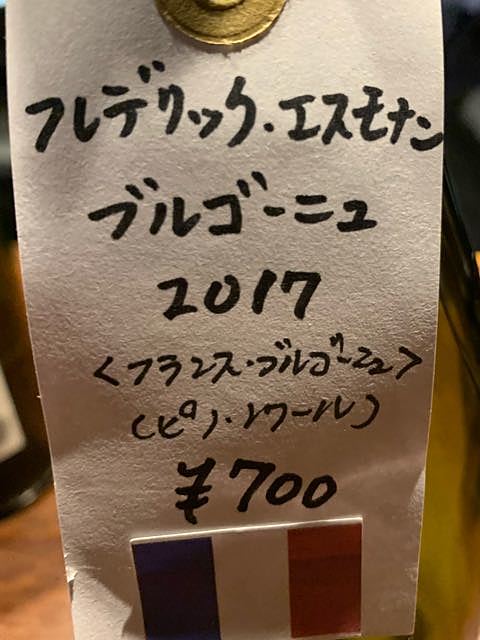 フレデリック・エスモナン
ブルゴーニュ
2017
<フランス・ブルゴーニュ>
(ピノ・ノワール)
¥700